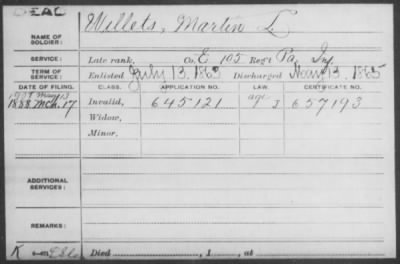 DEAL
NAME OF SOLDIER: Willets, Martin L.
SERVICE: Late rank, Co. E 105 Reg't Pa. Inf.
TERM OF SERVICE: Enlisted July 13, 1863 Discharged May 13, 1865
DATE OF FILING. CLASS. APPLICATION NO. LAW. CERTIFICATE NO.
1888 Mch. 17 Invalid, 645121 657193
Widow,
Minor,
ADDITIONAL SERVICES:
REMARKS:
K Died , 1 , at